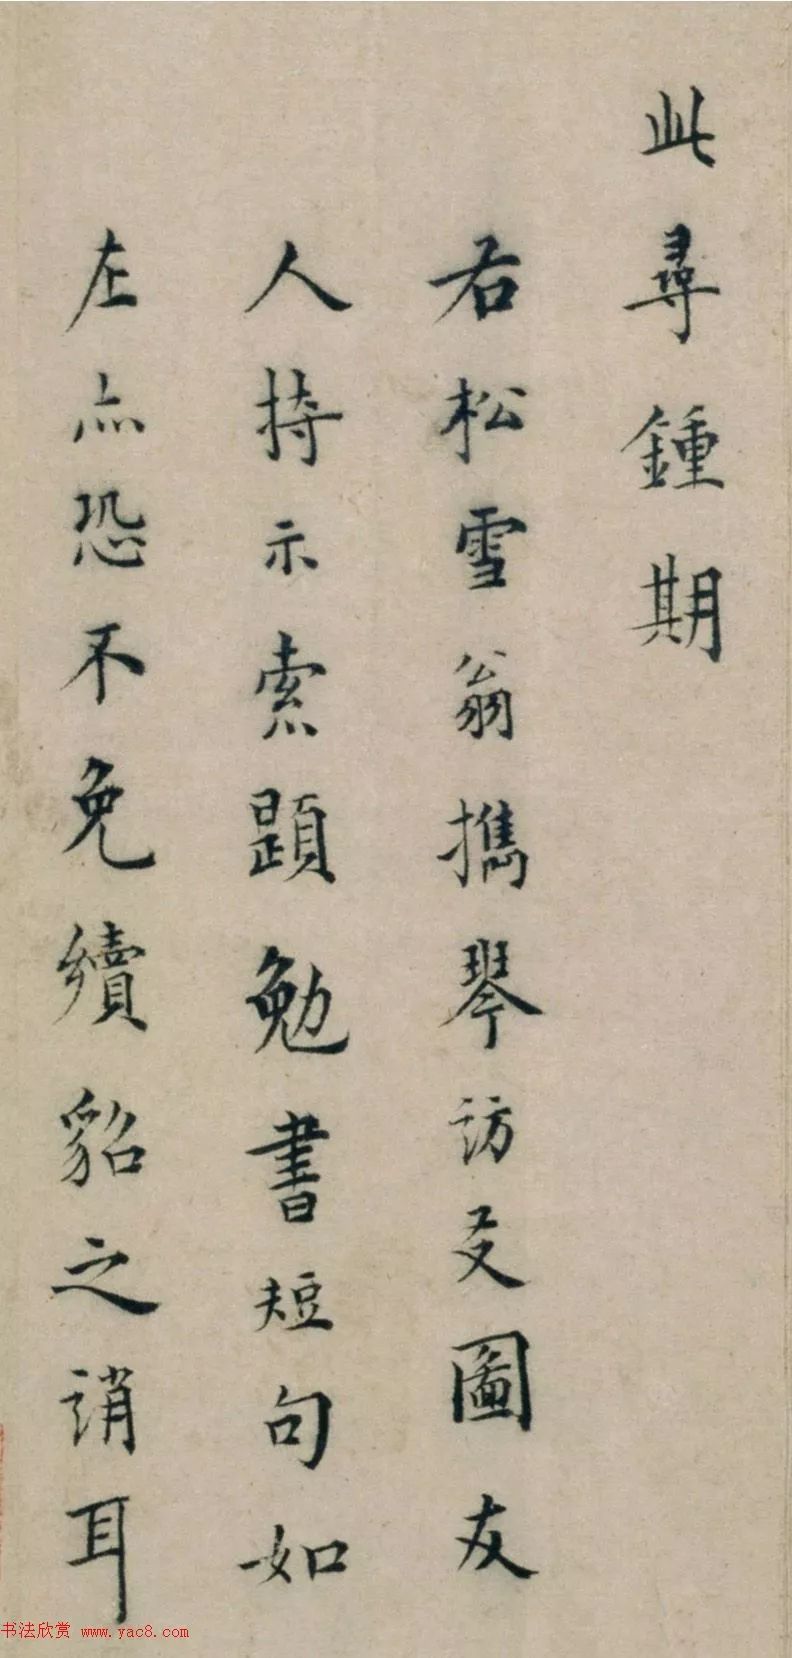 此尋鍾期
右松雪翁攜琴訪友圖友
人持示索題勉書短句如
左亦恐不免續貂之誚耳
书法欣赏 www.yac8.com